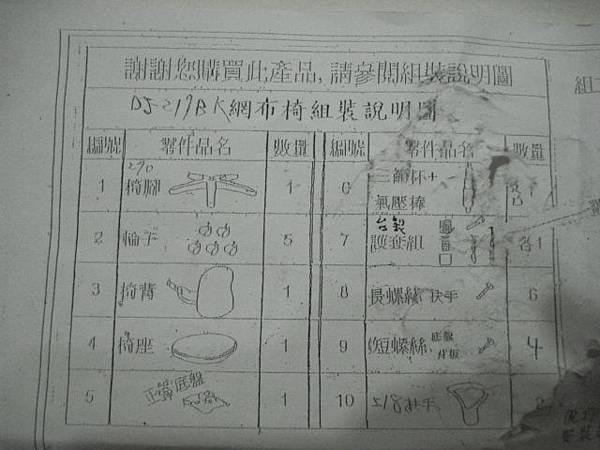 謝謝您購買此產品,請參閱組裝說明圖
DJ-219BK網布椅組裝說明圖
編號 零件品名 數量 編號 零件品名 數量
290
1 椅腳 1 6 三節杯+
氣壓棒
2 輪子 5 7 台製
護套組 各1
3 椅背 1 8 長螺絲 扶手 6
4 椅座 1 9 短螺絲 底盤
背板 4
5 底盤 1 10 518扶手 2
組